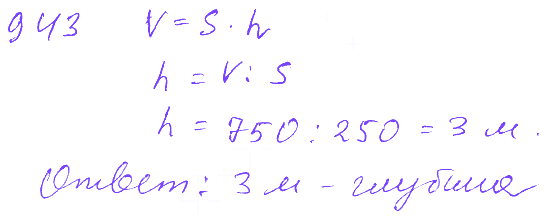 943 V = S · h
h = V : S
h = 750 : 250 = 3 м.
Ответ: 3 м - глубина